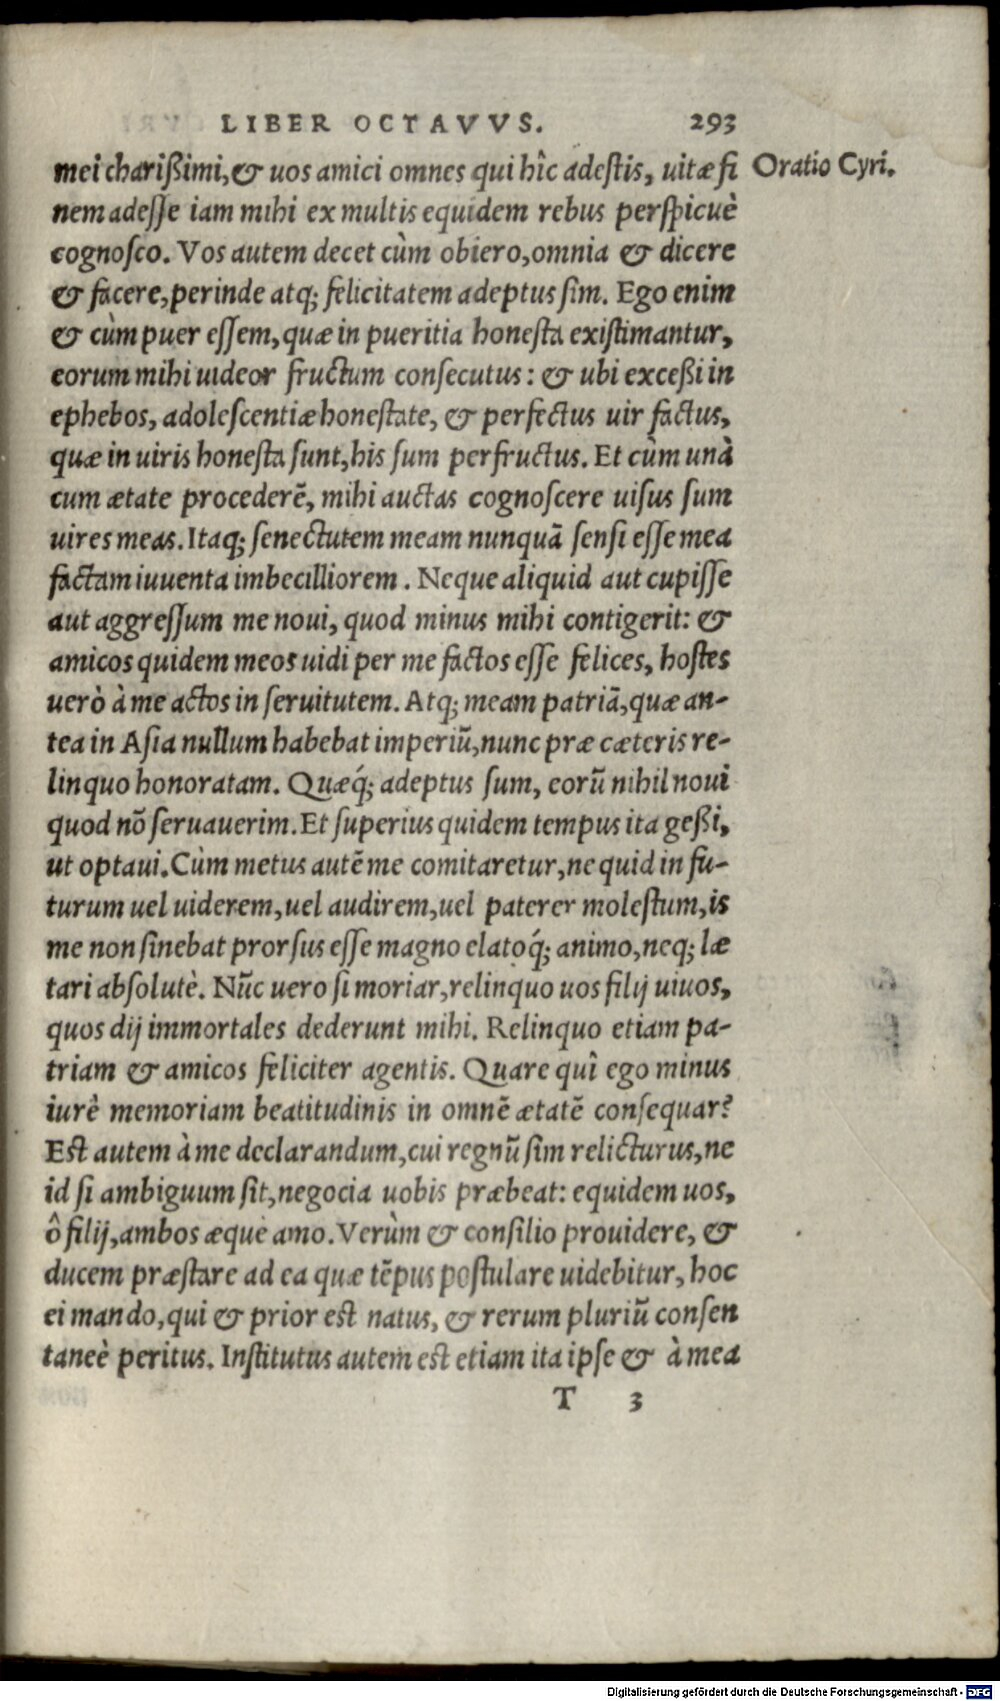 LIBER OCTAVVS. 293
mei charißimi, & uos amici omnes qui hîc adestis, uitæ fi Oratio Cyri.
nem adesse iam mihi ex multis equidem rebus perspicuè
cognosco. Vos autem decet cùm obiero, omnia & dicere
& facere, perinde atq; felicitatem adeptus sim. Ego enim
& cùm puer essem, quæ in pueritia honesta existimantur,
eorum mihi uideor fructum consecutus: & ubi exceßi in
ephebos, adolescentiæ honestate, & perfectus uir factus,
quæ in uiris honesta sunt, his sum perfructus. Et cùm unà
cum ætate procederē, mihi auctas cognoscere uisus sum
uires meas. Itaq; senectutem meam nunquā sensi esse mea
factam iuuenta imbecilliorem. Neque aliquid aut cupisse
aut aggressum me noui, quod minus mihi contigerit: &
amicos quidem meos uidi per me factos esse felices, hostes
uerò à me actos in seruitutem. Atq; meam patriā, quæ an-
tea in Asia nullum habebat imperiū, nunc præ cæteris re-
linquo honoratam. Quæq́; adeptus sum, eorū nihil noui
quod nō seruauerim. Et superius quidem tempus ita geßi,
ut optaui. Cùm metus autē me comitaretur, ne quid in fu-
turum uel uiderem, uel audirem, uel paterer molestum, is
me non sinebat prorsus esse magno elatoq́; animo, neq; læ
tari absolutè. Nūc uero si moriar, relinquo uos filij uiuos,
quos dij immortales dederunt mihi. Relinquo etiam pa-
triam & amicos feliciter agentis. Quare quî ego minus
iurè memoriam beatitudinis in omnē ætatē consequar?
Est autem à me declarandum, cui regnū sim relicturus, ne
id si ambiguum sit, negocia uobis præbeat: equidem uos,
ô filij, ambos æquè amo. Verùm & consilio prouidere, &
ducem præstare ad ea quæ tēpus postulare uidebitur, hoc
ei mando, qui & prior est natus, & rerum pluriū consen
taneè peritus. Institutus autem est etiam ita ipse & à mea
T 3
Digitalisierung gefördert durch die Deutsche Forschungsgemeinschaft - DFG